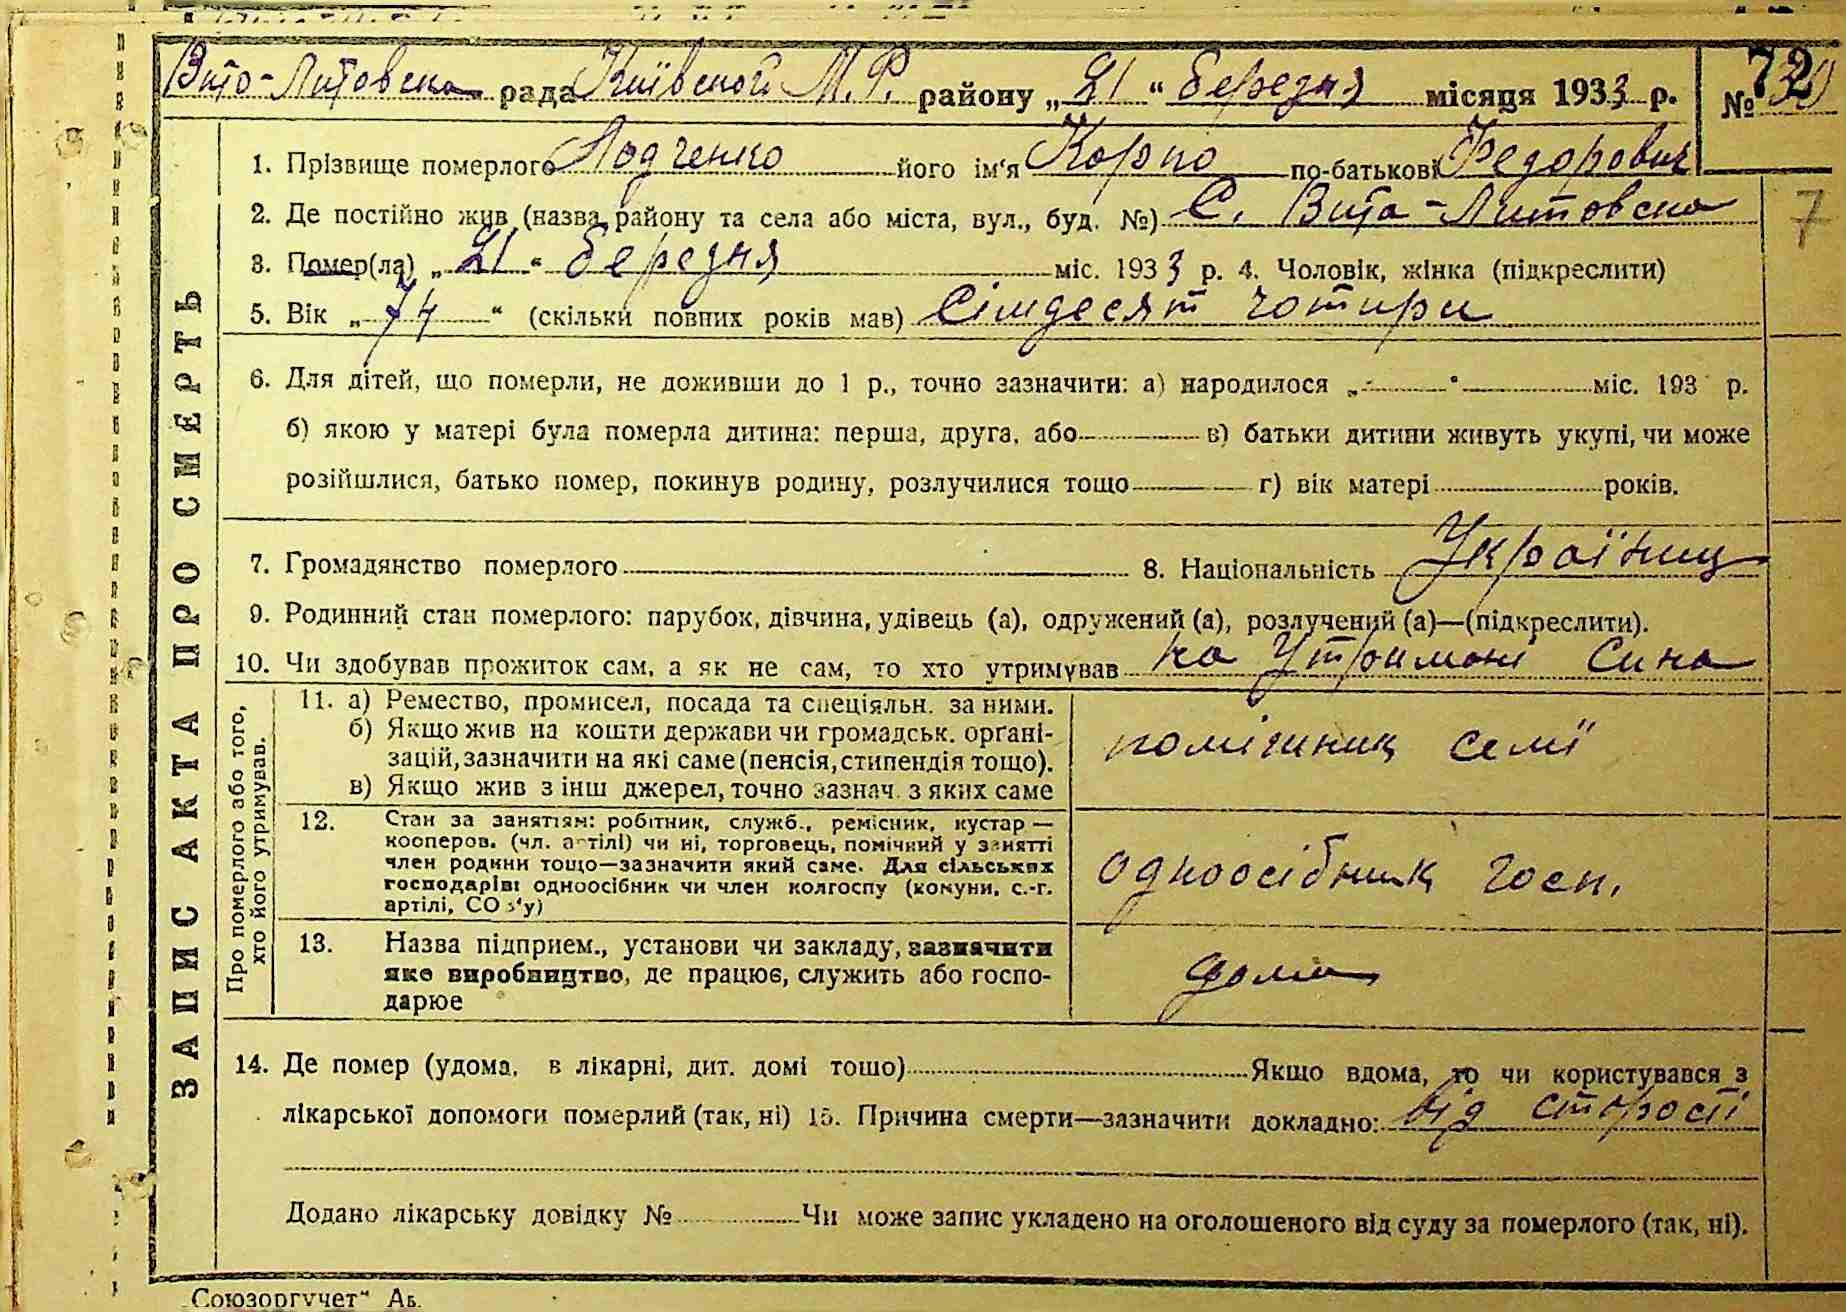 Вито-Литовська рада Київської М.Р. району „21“ березня місяця 1933 р. № 72
1. Прізвище померлого Лодченко його ім'я Корпо по-батькові Федорович
7
2. Де постійно жив (назва району та села або міста, вул., буд. №) С. Вита-Литовска
3. Помер(ла) „21“ березня міс. 1933 р. 4. Чоловік, жінка (підкреслити)
5. Вік „74“ (скільки повних років мав) Сімдесят чотири
6. Для дітей, що померли, не доживши до 1 р., точно зазначити: а) народилося „ “ міс. 193 р.
б) якою у матері була померла дитина: перша, друга, або в) батьки дитини живуть укупі, чи може
розійшлися, батько помер, покинув родину, розлучилися тощо г) вік матері років.
7. Громадянство померлого 8. Національність Українец
9. Родинний стан померлого: парубок, дівчина, удівець (а), одружений (а), розлучений (а)—(підкреслити).
10. Чи здобував прожиток сам, а як не сам, то хто утримував на Утримані Сина
ЗАПИС АКТА ПРО СМЕРТЬ
Про померлого або того,
хто його утримував.
11. а) Ремество, промисел, посада та спеціяльн. за ними.
б) Якщо жив на кошти держави чи громадськ. органі-
зацій, зазначити на які саме (пенсія, стипендія тощо).
в) Якщо жив з інш джерел, точно зазнач. з яких саме
помішник семї
12. Стан за заняттям: робітник, служб., ремісник, кустар —
кооперов. (чл. артілі) чи ні, торговець, помічний у занятті
член родини тощо—зазначити який саме. Для сільських
господарів: одноосібник чи член колгоспу (комуни, с.-г.
артілі, СО з'у)
одноосібник госп.
13. Назва підприєм., установи чи закладу, зазначити
яке виробництво, де працює, служить або госпо-
дарює
дома
14. Де помер (удома, в лікарні, дит. домі тощо) Якщо вдома, то чи користувався з
лікарської допомоги померлий (так, ні) 15. Причина смерти—зазначити докладно: від старості
Додано лікарську довідку № Чи може запис укладено на оголошеного від суду за померлого (так, ні).
„Союзоргучет“ Аб.